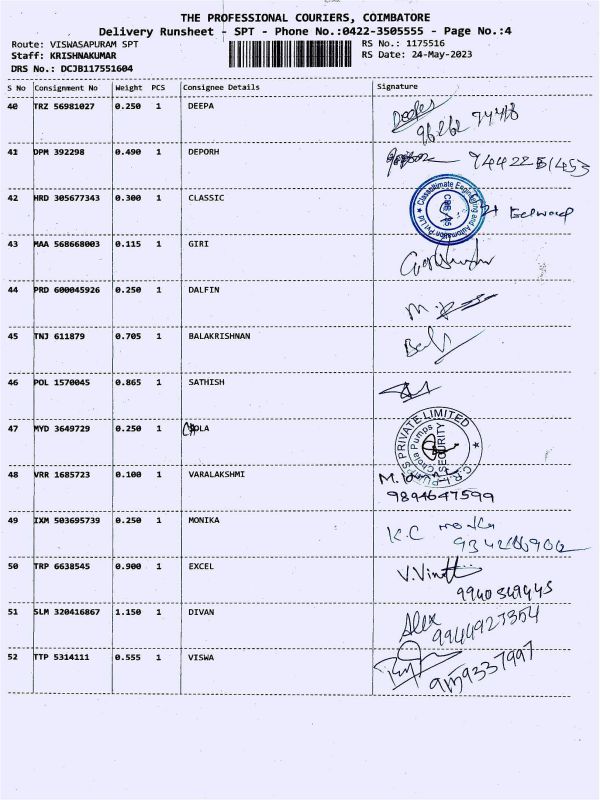 THE PROFESSIONAL COURIERS, COIMBATORE
Delivery Runsheet - SPT - Phone No.:0422-3505555 - Page No.:4
Route: VISWASAPURAM SPT RS No.: 1175516
Staff: KRISHNAKUMAR RS Date: 24-May-2023
DRS No.: DCJB117551604
S No Consignment No Weight PCS Consignee Details Signature
40 TRZ 56981027 0.250 1 DEEPA Deepa
41 DPM 392298 0.490 1 DEPORH
42 HRD 305677343 0.300 1 CLASSIC
43 MAA 568668003 0.115 1 GIRI
44 PRD 600045926 0.250 1 DALFIN
45 TNJ 611879 0.705 1 BALAKRISHNAN
46 POL 1570045 0.865 1 SATHISH
47 MYD 3649729 0.250 1 CHOLA
C.R.I. PUMPS PRIVATE LIMITED
Chola Pumps
SECURITY
48 VRR 1685723 0.100 1 VARALAKSHMI
9894647599
49 IXM 503695739 0.250 1 MONIKA K.C
50 TRP 6638545 0.900 1 EXCEL
9940349445
51 SLM 320416867 1.150 1 DIVAN Alex
9944927354
52 TTP 5314111 0.555 1 VISWA